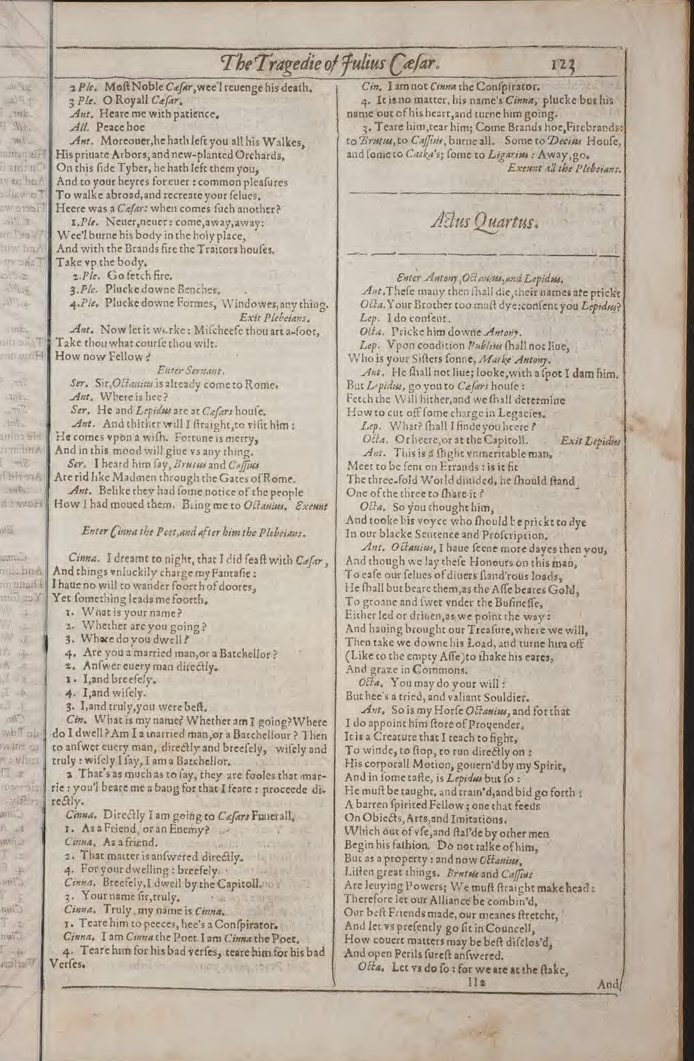 The Tragedie of Julius Cæsar. 123
2 Ple. Moſt Noble Cæſar, wee'l reuenge his death.
3 Ple. O Royall Cæſar.
Ant. Heare me with patience.
All. Peace hoe
Ant. Moreouer, he hath left you all his Walkes,
His priuate Arbors, and new-planted Orchards,
On this ſide Tyber, he hath left them you,
And to your heyres for euer: common pleaſures
To walke abroad, and recreate your ſelues.
Heere was a Cæſar: when comes ſuch another?
1.Ple. Neuer, neuer: come, away, away:
Wee'l burne his body in the holy place,
And with the Brands fire the Traitors houſes.
Take vp the body.
2.Ple. Go fetch fire.
3.Ple. Plucke downe Benches.
4.Ple. Plucke downe Formes, Windowes, any thing.
Exit Plebeians.
Ant. Now let it worke: Miſcheefe thou art a-foot,
Take thou what courſe thou wilt.
How now Fellow?
Enter Seruant.
Ser. Sir, Octauius is already come to Rome.
Ant. Where is hee?
Ser. He and Lepidus are at Cæſars houſe.
Ant. And thither will I ſtraight, to viſit him:
He comes vpon a wiſh. Fortune is merry,
And in this mood will giue vs any thing.
Ser. I heard him ſay, Brutus and Caſſius
Are rid like Madmen through the Gates of Rome.
Ant. Belike they had ſome notice of the people
How I had moued them. Bring me to Octauius. Exeunt
Enter Cinna the Poet, and after him the Plebeians.
Cinna. I dreamt to night, that I did feaſt with Cæſar,
And things vnluckily charge my Fantaſie:
I haue no will to wander foorth of doores,
Yet ſomething leads me foorth.
1. What is your name?
2. Whether are you going?
3. Where do you dwell?
4. Are you a married man, or a Batchellor?
2. Anſwer euery man directly.
1. I, and breefely.
4. I, and wiſely.
3. I, and truly, you were beſt.
Cin. What is my name? Whether am I going? Where
do I dwell? Am I a married man, or a Batchellour? Then
to anſwer euery man, directly and breefely, wiſely and
truly: wiſely I ſay, I am a Batchellor.
2 That's as much as to ſay, they are fooles that mar-
rie: you'l beare me a bang for that I feare: proceede di-
rectly.
Cinna. Directly I am going to Cæſars Funerall.
1. As a Friend, or an Enemy?
Cinna. As a friend.
2. That matter is anſwered directly.
4. For your dwelling: breefely.
Cinna. Breefely, I dwell by the Capitoll.
3. Your name ſir, truly.
Cinna. Truly, my name is Cinna.
1. Teare him to peeces, hee's a Conſpirator.
Cinna. I am Cinna the Poet, I am Cinna the Poet.
4. Teare him for his bad verſes, teare him for his bad
Verſes.
Cin. I am not Cinna the Conſpirator.
4. It is no matter, his name's Cinna, plucke but his
name out of his heart, and turne him going.
3. Teare him, tear him; Come Brands hoe, Firebrands:
to Brutus, to Caſſius, burne all. Some to Decius Houſe,
and ſome to Caska's; ſome to Ligarius: Away, go.
Exeunt all the Plebeians.
Actus Quartus.
Enter Antony, Octauius, and Lepidus.
Ant. Theſe many then ſhall die, their names are prickt
Octa. Your Brother too muſt dye: conſent you Lepidus?
Lep. I do conſent.
Octa. Pricke him downe Antony.
Lep. Vpon condition Publius ſhall not liue,
Who is your Siſters ſonne, Marke Antony.
Ant. He ſhall not liue; looke, with a ſpot I dam him.
But Lepidus, go you to Cæſars houſe:
Fetch the Will hither, and we ſhall determine
How to cut off ſome charge in Legacies.
Lep. What? ſhall I finde you heere?
Octa. Or heere, or at the Capitoll. Exit Lepidus
Ant. This is a ſlight vnmeritable man,
Meet to be ſent on Errands: is it fit
The three-fold World diuided, he ſhould ſtand
One of the three to ſhare it?
Octa. So you thought him,
And tooke his voyce who ſhould be prickt to dye
In our blacke Sentence and Proſcription.
Ant. Octauius, I haue ſeene more dayes then you,
And though we lay theſe Honours on this man,
To eaſe our ſelues of diuers ſland'rous loads,
He ſhall but beare them, as the Aſſe beares Gold,
To groane and ſwet vnder the Buſineſſe,
Either led or driuen, as we point the way:
And hauing brought our Treaſure, where we will,
Then take we downe his Load, and turne him off
(Like to the empty Aſſe) to ſhake his eares,
And graze in Commons.
Octa. You may do your will:
But hee's a tried, and valiant Souldier.
Ant. So is my Horſe Octauius, and for that
I do appoint him ſtore of Prouender.
It is a Creature that I teach to fight,
To winde, to ſtop, to run directly on:
His corporall Motion, gouern'd by my Spirit,
And in ſome taſte, is Lepidus but ſo:
He muſt be taught, and train'd, and bid go forth:
A barren ſpirited Fellow; one that feeds
On Obiects, Arts, and Imitations.
Which out of vſe, and ſtal'de by other men
Begin his faſhion. Do not talke of him,
But as a property: and now Octauius,
Liſten great things. Brutus and Caſſius
Are leuying Powers; We muſt ſtraight make head:
Therefore let our Alliance be combin'd,
Our beſt Friends made, our meanes ſtretcht,
And let vs preſently go ſit in Councell,
How couert matters may be beſt diſclos'd,
And open Perils ſureſt anſwered.
Octa. Let vs do ſo: for we are at the ſtake,
ll2 And